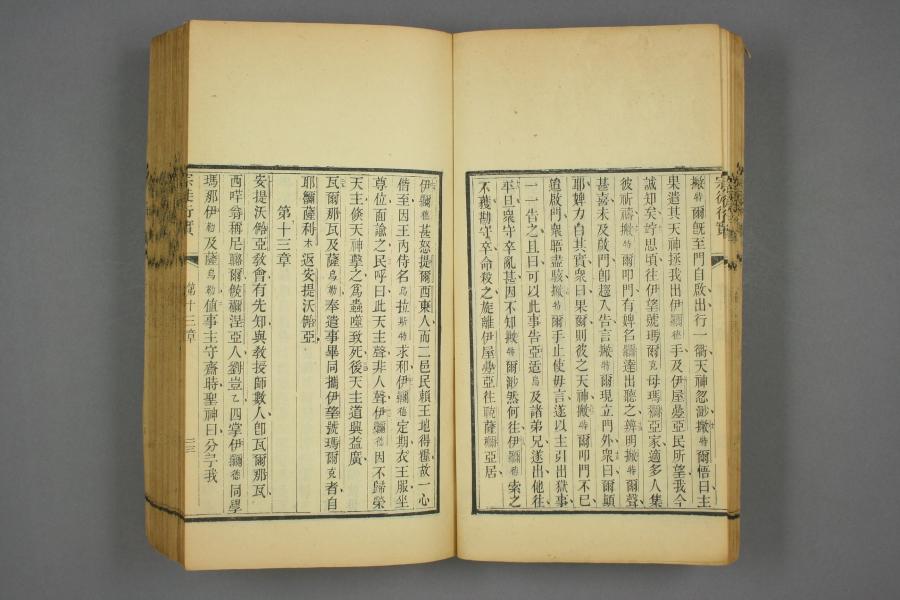 撇特爾旣至門自啟出行一衢天神忽渺撇特爾悟曰主
果遣其天神拯我出伊羅德手及伊屋疊亞民所望我今
誠知矣竚思頃往伊望號瑪爾克母瑪爾亞家適多人集
彼祈禱撇特爾叩門有婢名達出聽之辨明撇特爾聲
甚喜未及啟門卽趨入告言撇特爾現立門外衆曰爾顚
耶婢力白其實衆曰果爾則彼之天神撇特爾叩門不已
追啟門衆睹盡駭撇特爾手止使毋言遂以主引出獄事
一一告之且曰可以此事告亞适烏及諸弟兄遂出他往
平旦衆守卒亂甚因不知撇特爾渺然何往伊德索之
不獲勘守卒命殺之旋離伊屋疊亞往薩爾亞居
伊德甚怒提爾西東人而二邑民賴王地得糧故一心
偕至因王內侍名烏拉斯特求和伊德定期衣王服坐
尊位面諭之民呼曰此天主聲非人聲伊德因不歸榮
天主倐天神擊之爲蟲噬致死後天主道興益廣
瓦爾那瓦及薩烏勒奉遣事畢同攜伊望號瑪爾克者自
耶薩利木返安提沃亞
第十三章
安提沃亞敎會有先知與敎授師數人卽瓦爾那瓦
西翁稱尼爾爾涅亞人劉乙四掌伊德同學
瑪那伊勒及薩烏勒値事主守齋時聖神曰分予我
宗徒行實
第十三章